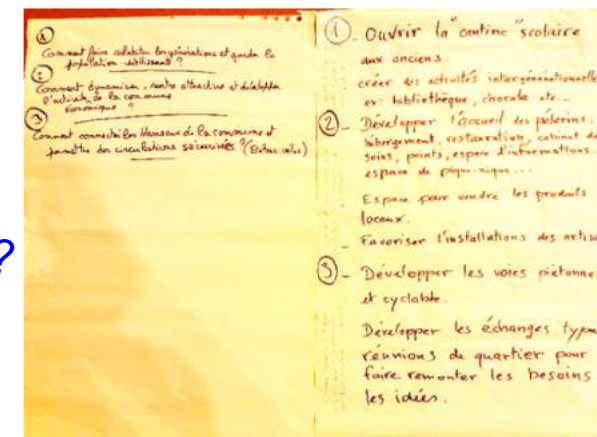 ?
①
Comment faire cohabiter les générations et garder la
population vieillissant ?
②
Comment dynamiser, rendre attractive et développer
l'activité de la commune
économique ?
③
Comment connecter les Hameaux de la commune et
permettre des circulations sécurisées ? (Piétons, vélos)
① - Ouvrir la "cantine" scolaire
aux anciens.
créer des activités intergénérationnelle
ex: bibliothèque, chorale etc...
② - Développer l'accueil des pèlerins.
hébergement, restauration, cabinet de
soins, points, espace d'informations.
espace de pique-nique...
- Espace pour vendre les produits
locaux.
- Favoriser l'installations des artis
③ - Développer les voies piétonne
et cyclable.
Développer les échanges type
réunions de quartier pour
faire remonter les besoins
les idées.